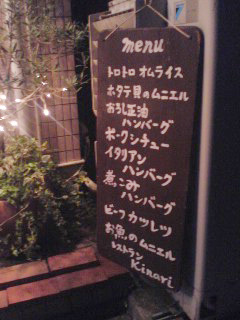 menu
トロトロ オムライス
ホタテ貝のムニエル
おろし正油
ハンバーグ
ポークシチュー
イタリアン
ハンバーグ
煮こみ
ハンバーグ
ビーフカツレツ
お魚のムニエル
レストラン
Kinari